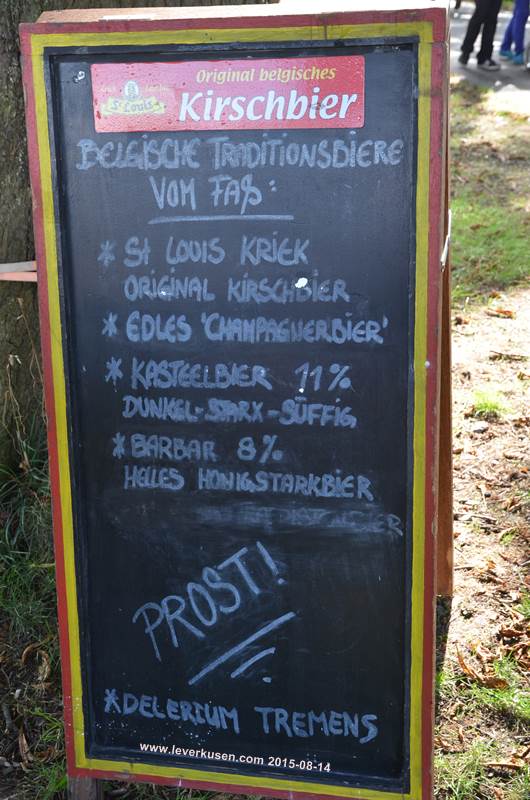 St Louis
Original belgisches
Kirschbier
BELGISCHE TRADITIONSBIERE
VOM FAß:
* St LOUIS KRIEK
ORIGINAL KIRSCHBIER
* EDLES 'CHAMPAGNERBIER'
* KASTEELBIER 11%
DUNKEL-STARK-SÜFFIG
* BARBAR 8%
HELLES HONIGSTARKBIER
PROST!
* DELERIUM TREMENS
www.leverkusen.com 2015-08-14